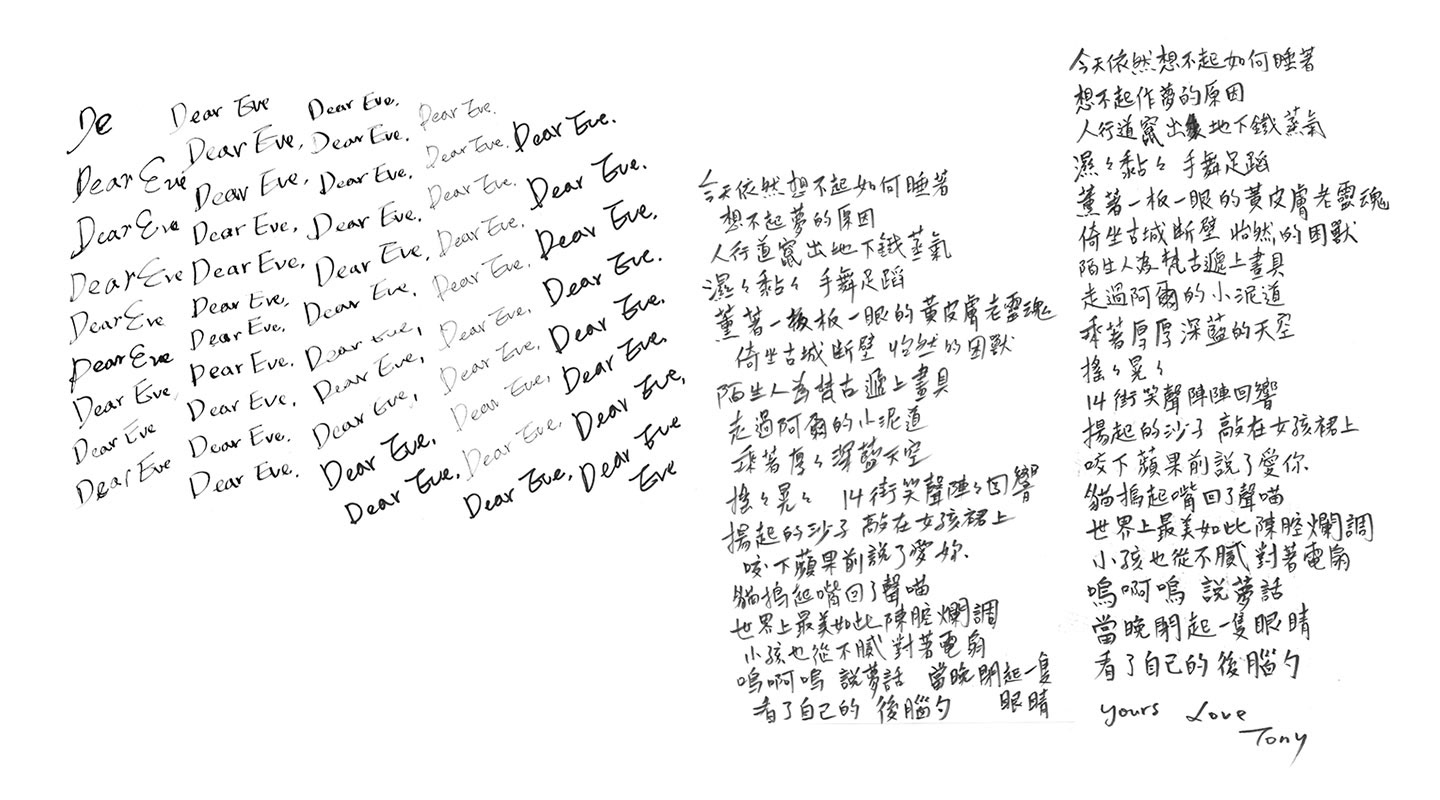 De
Dear Eve
Dear Eve
Dear Eve
Dear Eve
Dear Eve
Dear Eve,
Dear Eve
Dear Eve
Dear Eve
Dear Eve,
Dear Eve,
Dear Eve,
Dear Eve,
Dear Eve,
Dear Eve,
Dear Eve,
Dear Eve,
Dear Eve.
Dear Eve.
Dear Eve.
Dear Eve.
Dear Eve.
Dear Eve.
Dear Eve.
Dear Eve.
Dear Eve,
Dear Eve,
Dear Eve,
Dear Eve,
Dear Eve,
Dear Eve,
Dear Eve.
Dear Eve.
Dear Eve.
Dear Eve.
Dear Eve.
Dear Eve,
Dear Eve,
Dear Eve,
Dear Eve,
Dear Eve.
Dear Eve.
Dear Eve.
Dear Eve.
Dear Eve.
Dear Eve.
Dear Eve,
Dear Eve,
Dear Eve
Eve
今天依然想不起如何睡著
想不起夢的原因
人行道竄出地下鐵蒸氣
濕々黏々 手舞足蹈
薰著一板一眼的黃皮膚老靈魂
倚坐古城斷壁 怡然的困獸
陌生人為梵古遞上畫具
走過阿爾的小泥道
乘著厚々深藍天空
搖々晃々 14街笑聲陣々回響
揚起的沙子 敲在女孩裙上
咬下蘋果前說了愛妳.
貓搗起嘴回了聲喵
世界上最美如此陳腔爛調
小孩也從不膩 對著電扇
嗚啊嗚 說夢話 當晚閉起一隻
看了自己的 後腦勺 眼睛
今天依然想不起如何睡著
想不起作夢的原因
人行道竄出地下鐵蒸氣
濕々黏々 手舞足蹈
薰著一板一眼的黃皮膚老靈魂
倚坐古城斷壁 怡然的困獸
陌生人為梵古遞上畫具
走過阿爾的小泥道
乘著厚厚深藍的天空
搖々晃々
14街笑聲陣陣回響
揚起的沙子 敲在女孩裙上
咬下蘋果前說了愛你.
貓搗起嘴回了聲喵
世界上最美如此陳腔爛調
小孩也從不膩 對著電扇
嗚啊嗚 說夢話
當晚閉起一隻眼睛
看了自己的後腦勺
yours Love
Tony